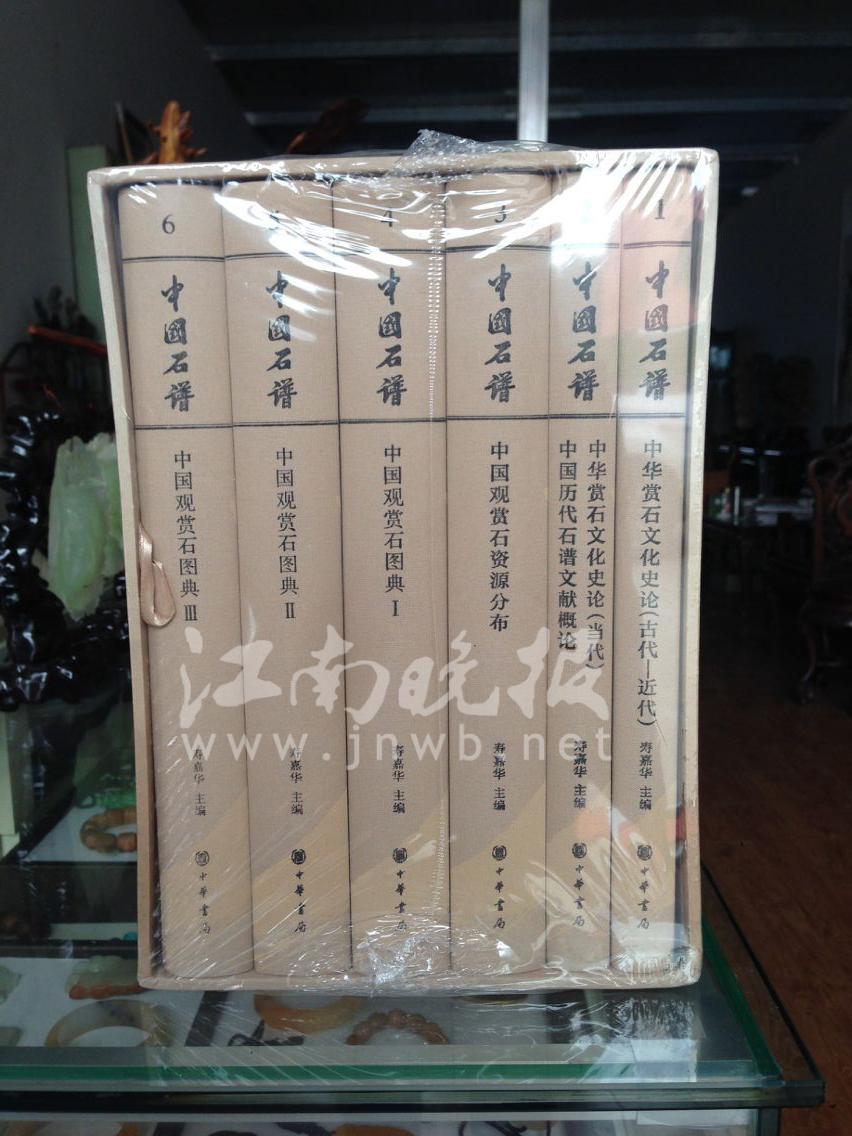 6
中國石谱
中国观赏石图典 Ⅲ
寿嘉华 主编
中华書局
中國石谱
中国观赏石图典 Ⅱ
寿嘉华 主编
中華書局
4
中國石谱
中国观赏石图典 Ⅰ
寿嘉华 主编
中華書局
3
中國石谱
中国观赏石资源分布
寿嘉华 主编
中華書局
中國石谱
中华赏石文化史论(当代)
中国历代石谱文献概论
寿嘉华 主编
中華書局
1
中國石谱
中华赏石文化史论(古代—近代)
寿嘉华 主编
中華書局
江南晚报
www.jnwb.net